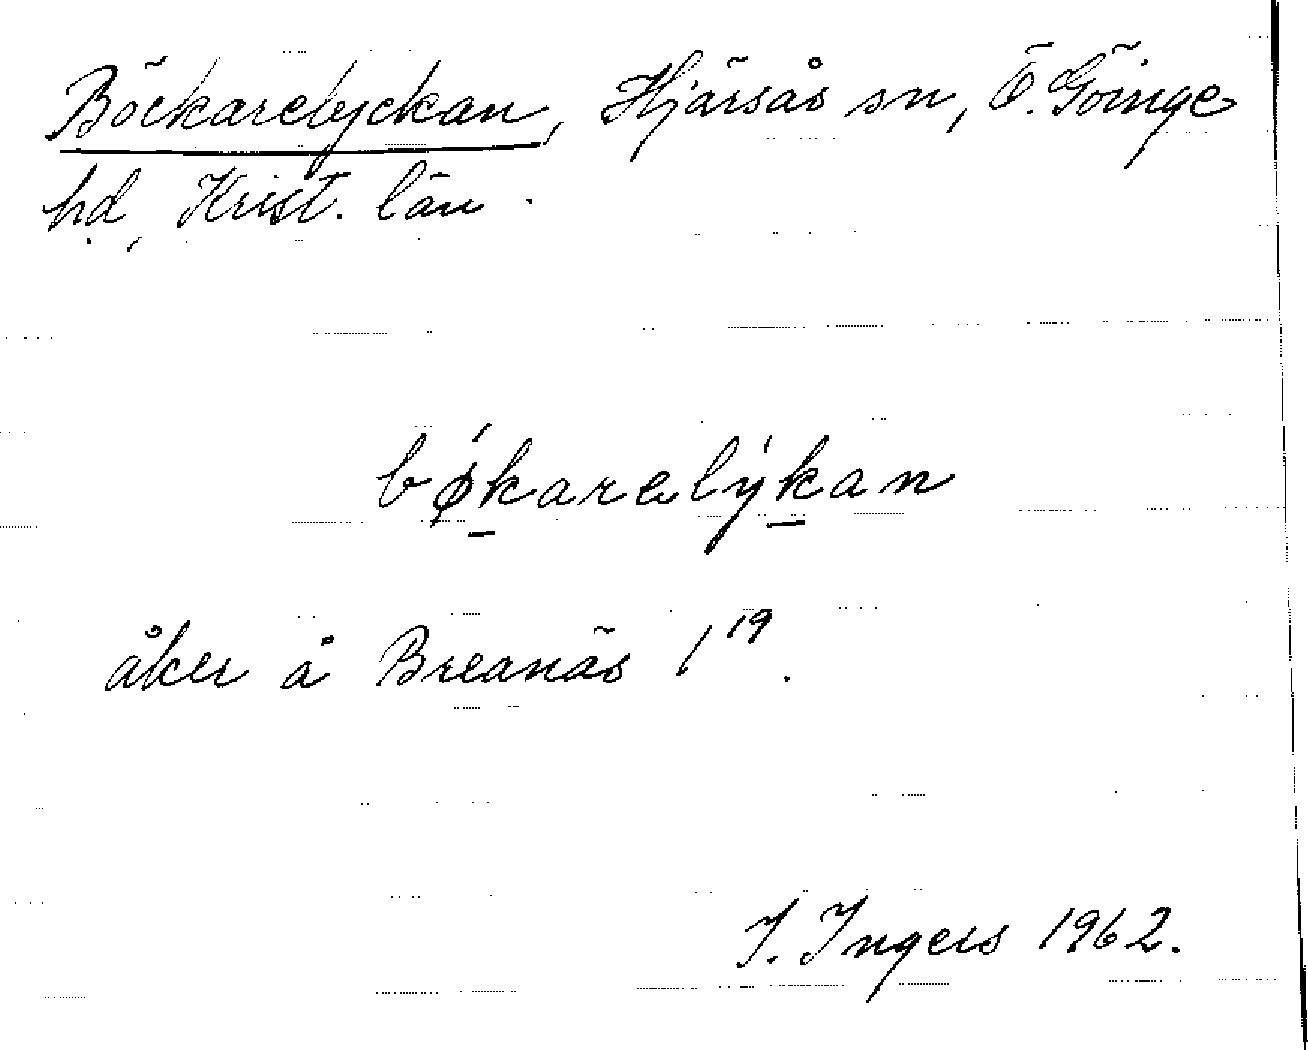 Böckarelyckan, Hjärsås sn, Ö. Göinge
hd, Krist. län.
bǿkarelýkan
åker å Breanäs 1¹⁹.
I. Ingers 1962.